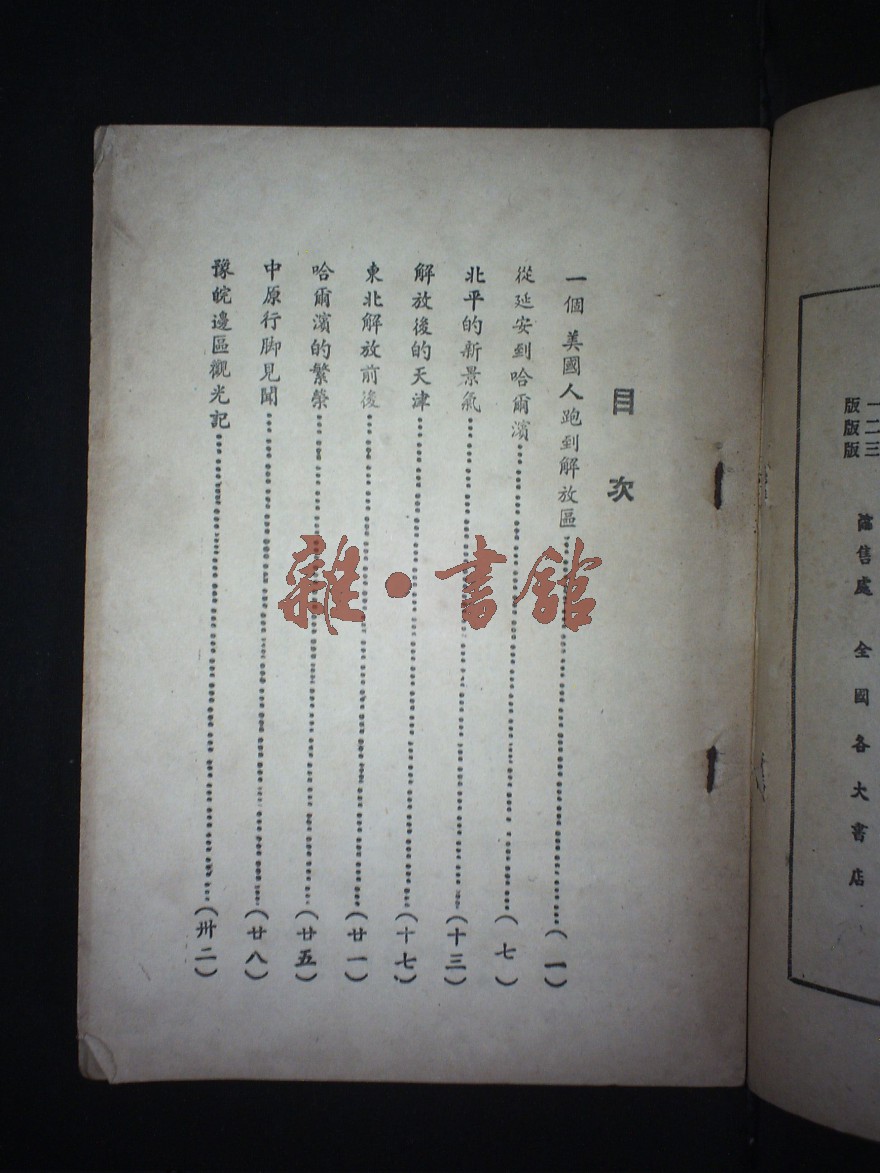 版一
版二
版三
售處 全國各大書店
目次
一個美國人跑到解放區……(一)
從延安到哈爾濱……(七)
北平的新景氣……(十三)
解放後的天津……(十七)
東北解放前後……(廿一)
哈爾濱的繁榮……(廿五)
中原行脚見聞……(廿八)
豫皖邊區觀光記……(卅二)
雜·書館